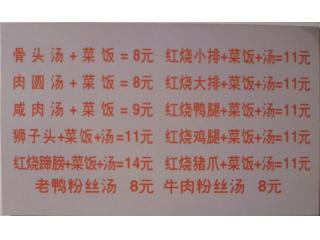 骨头汤+菜饭=8元 红烧小排+菜饭+汤=11元
肉圆汤+菜饭=8元 红烧大排+菜饭+汤=11元
咸肉汤+菜饭=9元 红烧鸭腿+菜饭+汤=11元
狮子头+菜饭+汤=11元 红烧鸡腿+菜饭+汤=11元
红烧蹄膀+菜饭+汤=14元 红烧猪爪+菜饭+汤=11元
老鸭粉丝汤 8元 牛肉粉丝汤 8元